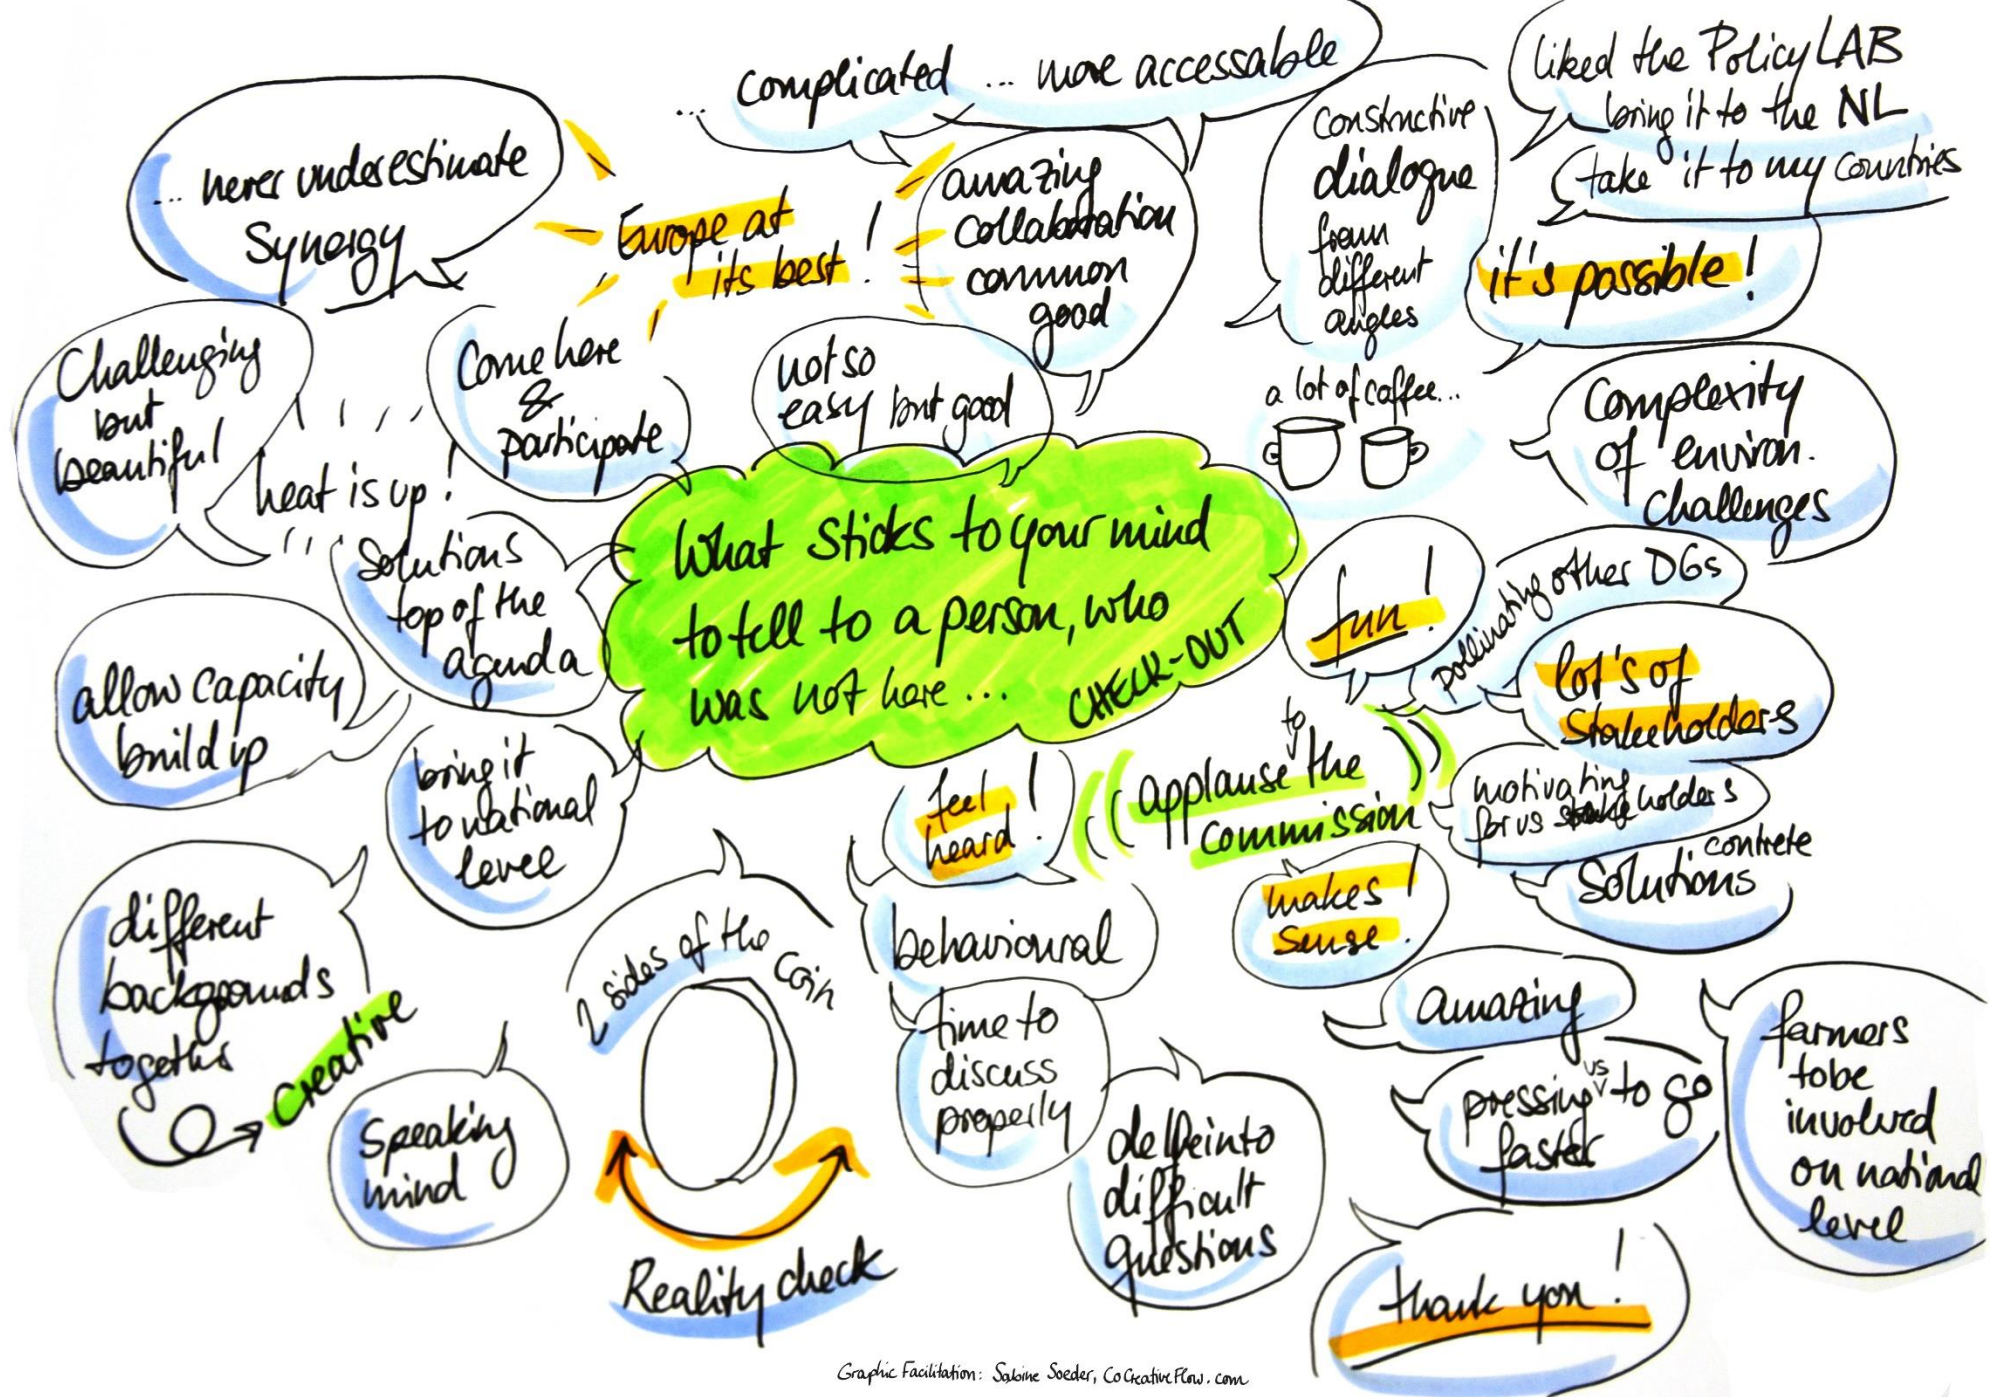 ... complicated ... more accessable
liked the Policy LAB
bring it to the NL
take it to my countries
... never underestimate
Synergy
Europe at
its best!
amazing
collaboration
common
good
constructive
dialogue
from
different
angles
it's possible!
Challenging
but
beautiful
Come here
&
participate
not so
easy but good
a lot of coffee...
Complexity
of environ.
challenges
heat is up!
Solutions
top of the
agenda
What sticks to your mind
to tell to a person, who
was not here ...
CHECK-OUT
fun!
pollinating other DGs
lot's of
Stakeholders
allow capacity
build up
bring it
to national
level
feel
heard!
applause to the
commission
motivating
for us holders
concrete
Solutions
makes
sense!
different
backgrounds
together
creative
2 sides of the coin
behavioural
time to
discuss
properly
amazing
pressing us to go
faster
farmers
to be
involved
on national
level
Speaking
mind
delve into
difficult
questions
Reality check
thank you!
Graphic Facilitation: Sabine Soeder, CoCreativeFlow.com